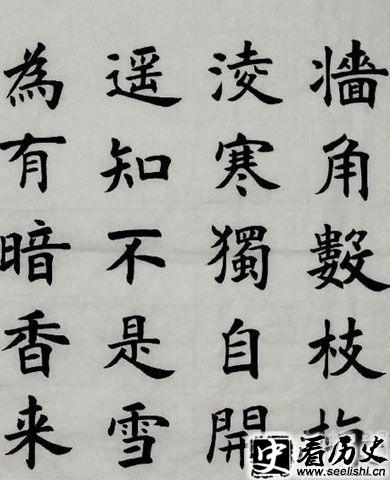 牆角數枝
淩寒獨自開
遥知不是雪
為有暗香来
史 看历史
www.seelishi.com